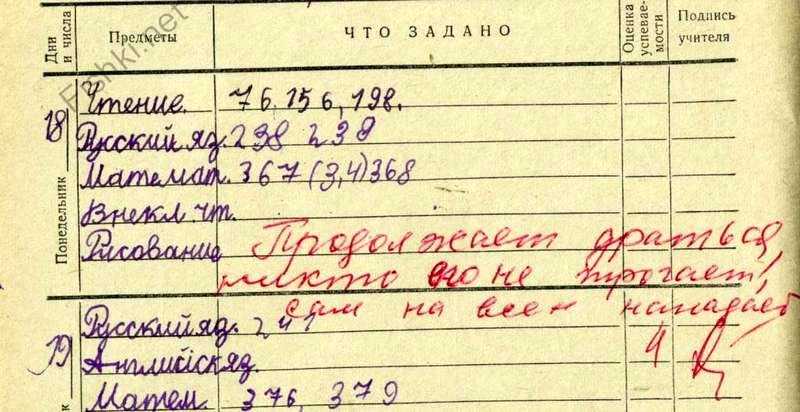 Дни и числа
Предметы
ЧТО ЗАДАНО
Оценка успевае-мости
Подпись учителя
Fishki.net
Понедельник
18
Чтение. 76, 156, 198.
Русский яз. 238 239
Математ. 367 (3,4) 368
Внекл. чт.
Рисование
Продолжает драться,
никто его не трогает,
сам на всех нападает
19
Русский яз. 241
Английск яз. 4
Матем. 376, 379